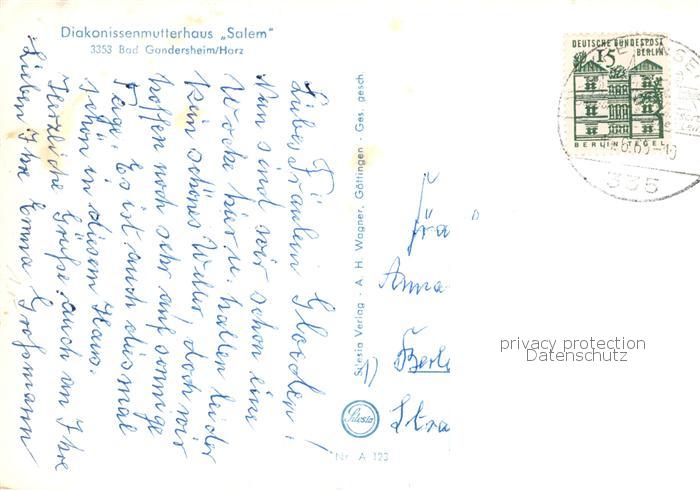 Diakonissenmutterhaus „Salem"
3353 Bad Gandersheim/Harz
Liebes Fräulein Gloeden!
Nun sind wir schon eine
Woche hier u. hatten leider
kein schönes Wetter, doch wir
hoffen noch sehr auf sonnige
Tage. Es ist auch diesmal
schön in diesem Haus.
Herzliche Grüße auch an Ihre
Lieben Ihre Erna Großmann
Silesia Verlag · A. H. Wagner, Göttingen · Ges. gesch.
Silesia
Nr. A 123
DEUTSCHE BUNDESPOST
BERLIN
15
BERLIN TEGEL
335
Anna
Berl
Stra
privacy protection
Datenschutz